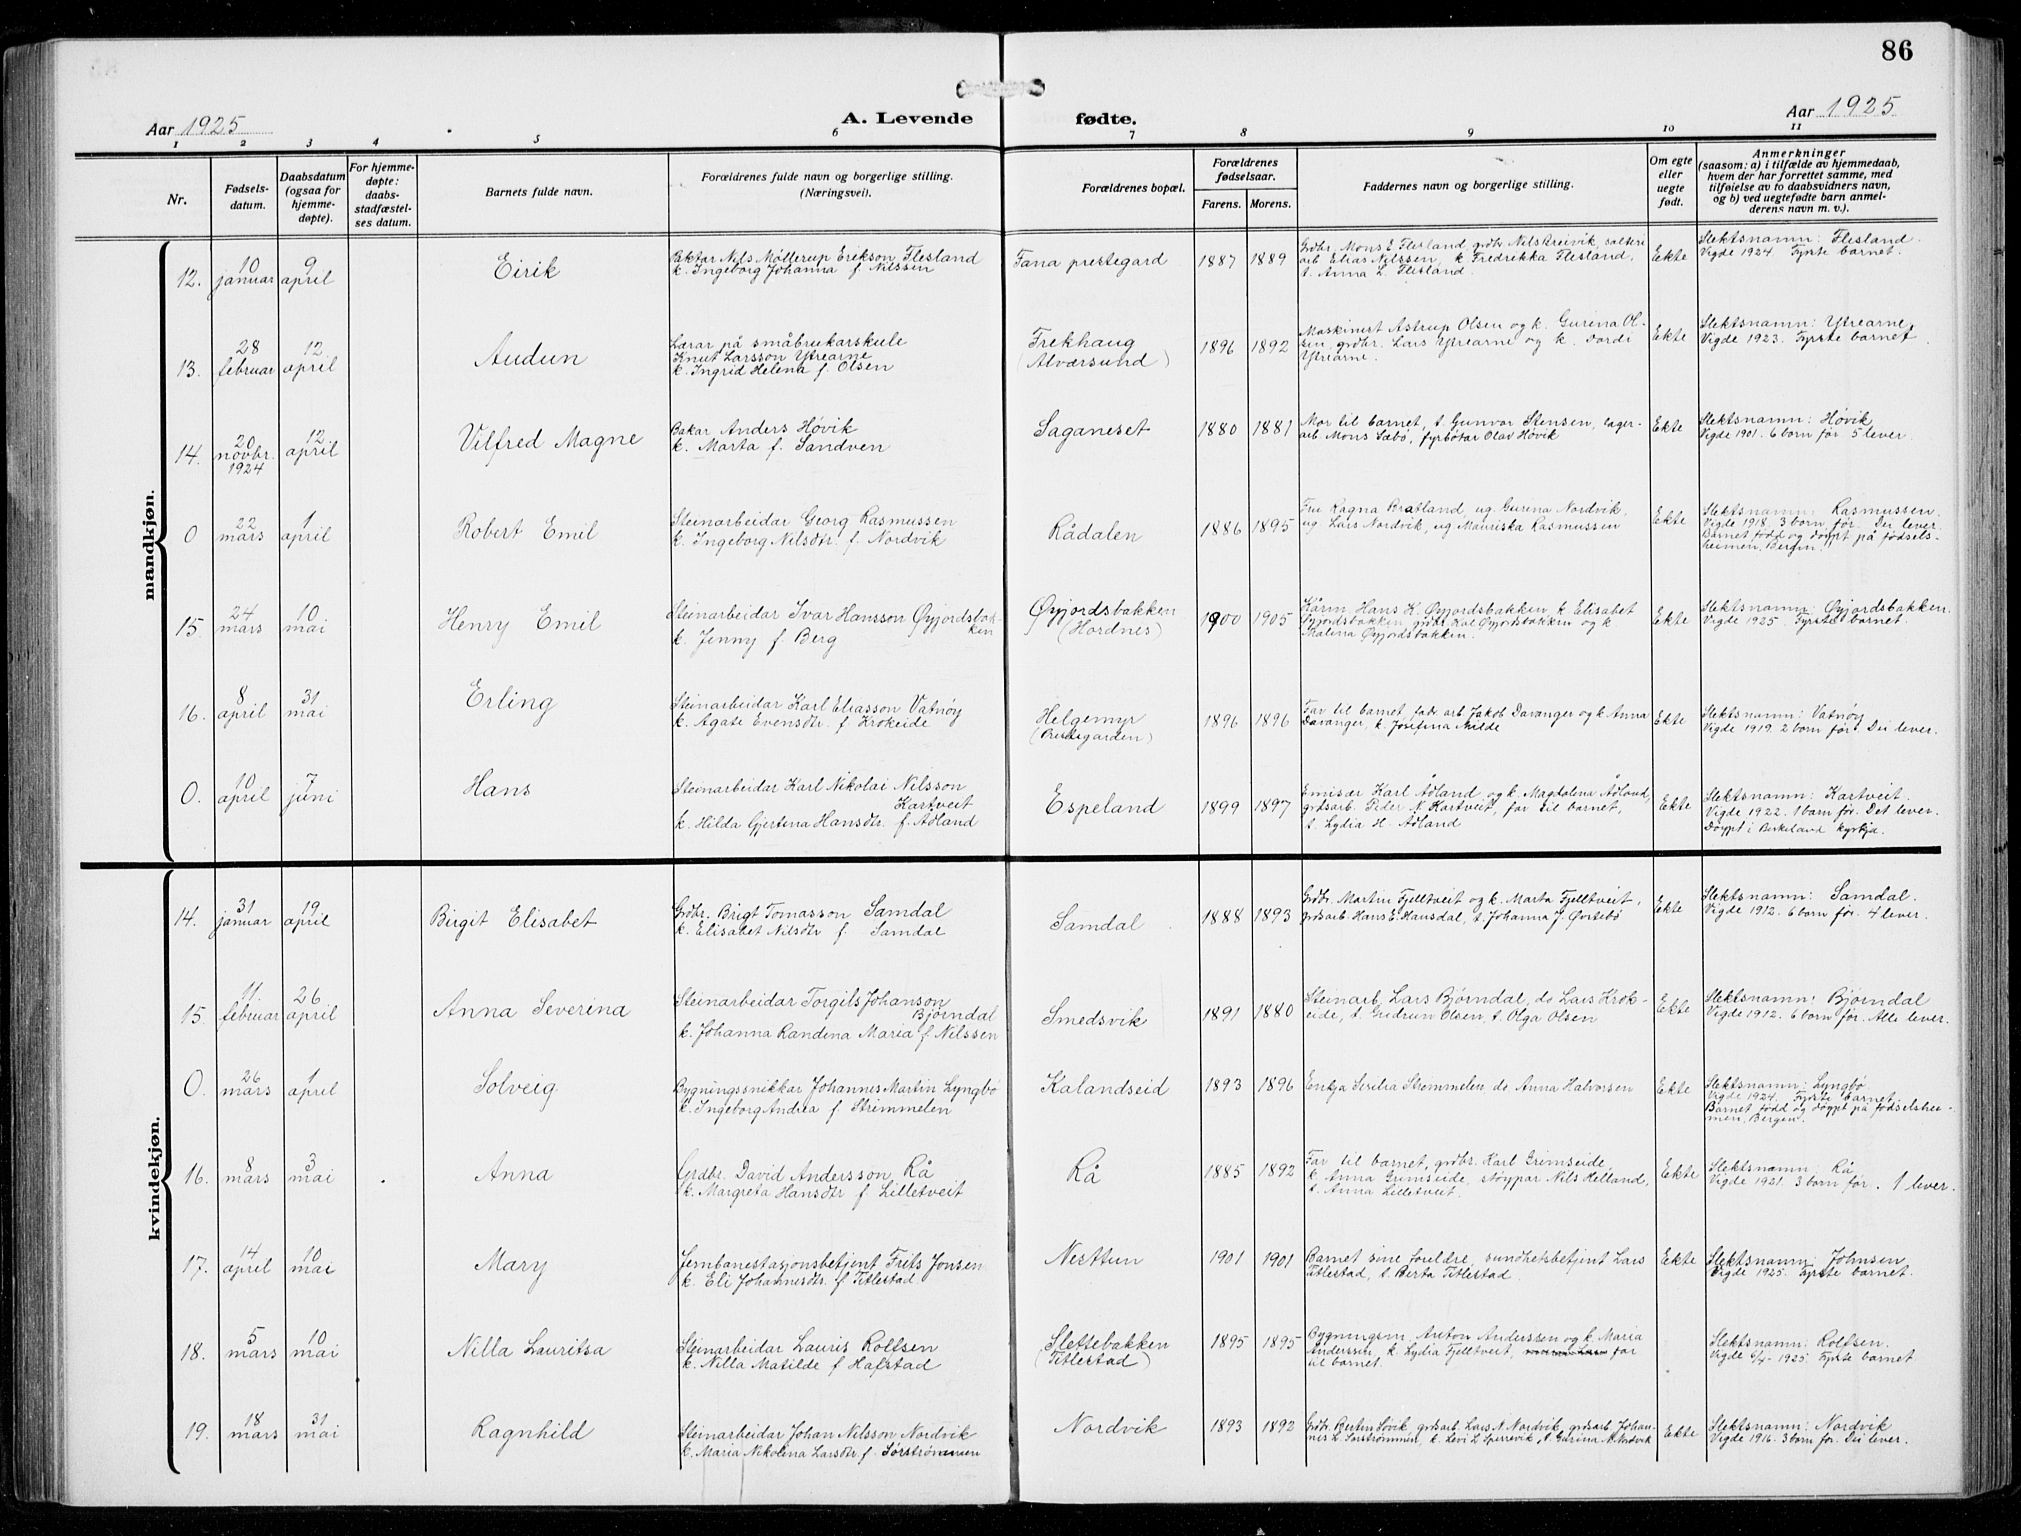 86
Aar 1925 A. Levende fødte. Aar 1925
1 2 3 4 5 6 7 8 9 10 11
Nr.
Fødsels-
datum.
Daabsdatum
(ogsaa for
hjemme-
døpte).
For hjemme-
døpte:
daabs-
stadfæstel-
ses datum.
Barnets fulde navn.
Forældrenes fulde navn og borgerlige stilling.
(Næringsvei).
Forældrenes bopæl.
Forældrenes
fødselsaar.
Farens. Morens.
Faddernes navn og borgerlige stilling.
Om egte
eller
uegte
født.
Anmerkninger
(saasom: a) i tilfælde av hjemmedaab,
hvem der har forrettet samme, med
tilføielse av to daabsvidners navn,
og b) ved uegtefødte barn anmel-
derens navn m. v.).
mandkjøn.
12.
10
januar
9
april
Eirik
Nils Møllerup Erikson Flesland
k. Ingeborg Johanna f. Nilssen
Fana prestegard
1887 1889
Grdbr. Mons E. Flesland, grdbr. Nils Breivik,
arb. Elias Nilssen, k. Fredrikka Flesland,
t. Anna L. Flesland.
Ekte
Slektsnamn: Flesland.
Vigde 1924. Fyrste barnet.
13.
28
februar
12
april
Audun
Lærar på småbrukarskule
Knut Larsson Ytrearne
k. Ingrid Helena f. Olsen
Frekhaug
(Alværsund)
1896 1892
Maskinist Astrup Olsen og k. Gurena Ol-
sen, grdbr. Lars Ytrearne og k. Dordi
Ytrearne.
Ekte
Slektsnamn: Ytrearne.
Vigde 1923. Fyrste barnet.
14.
20
novbr.
1924
12
april
Vilfred Magne
Bakar Anders Høvik
k. Marta f. Sandven
Saganeset
1880 1881
Mor til barnet, t. Gunvor Stensen, lager-
arb. Mons Sæbø, fyrbøtar Olav Høvik
Ekte
Slektsnamn: Høvik
Vigde 1901. 6 born før. 5 lever.
0
22
mars
1
april
Robert Emil
Steinarbeidar Georg Rasmussen
k. Ingeborg Nilsdtr. f. Nordvik
Rådalen
1886 1895
Fru Ragna Bratland, ug. Gurina Nordvik,
ug. Lars Nordvik, ug. Mauriska Rasmussen
Ekte
Slektsnamn: Rasmussen.
Vigde 1918. 3 born før. Dei lever.
Barnet fødd og døypt på fødsels-
heimen, Bergen.
15
24
mars
10
mai
Henry Emil
Steinarbeidar Ivar Hansson Øyjordsbak-
ken
k. Jenny f. Berg
Øyjordsbakken
(Hordnes)
1900 1905
Hans K. Øyjordsbakken, k. Elisabet
Øyjordsbakken, grdbr. Kal Øyjordsbakken og k.
Malena Øyjordsbakken.
Ekte
Slektsnamn: Øyjordsbakken.
Vigde 1925. Fyrste barnet.
16.
8
april
31
mai
Erling
Steinarbeidar Karl Eliasson Vatnøy
k. Agate Evensdtr. f. Krokeide
Helgemyr
(Prestegarden)
1896 1896
Far til barnet, fabr. arb. Jakob Davanger og k. Anna
Davanger, k. Josefina Milde
Ekte
Slektsnamn: Vatnøy
Vigde 1919. 2 born før. Dei lever.
0.
10
april
7
juni
Hans
Steinarbeidar Karl Nikolai Nilsson
Kartveit
k. Hilda Gjertina Hansdtr. f. Ådland
Espeland
1899 1897
Emisær Karl Ådland og k. Magdalena Ådland,
grdsarb. Peder N. Kartveit, far til barnet,
t. Lydia H. Ådland
Ekte
Slektsnamn: Kartveit.
Vigde 1922. 1 born før. Det lever.
Døypt i Birkeland kyrkja.
kvindekjøn.
14.
31
januar
19
april
Birgit Elisabet
Grdbr. Brigt Tomasson Samdal
k. Elisabet Nilsdtr f. Samdal
Samdal
1888 1893
Grdbr. Martin Fjelltveit og k. Marta Fjelltveit,
grdsarb. Hans E. Hansdal, t. Johanna J. Øvrebø
Ekte
Slektsnamn: Samdal.
Vigde 1912. 6 born før. 4 lever.
15.
11
februar
26
april
Anna Severina
Steinarbeidar Torgils Johanson
Bjørndal
k. Johanna Randena Maria f. Nilssen
Smedsvik
1891 1880
Steinarb. Lars Bjørndal, do Lars Krok-
eide, t. Gudrun Olsen, t. Olga Olsen
Ekte
Slektsnamn: Bjørndal
Vigde 1912. 6 born før. Alle lever.
0.
26
mars
1
april
Solveig
Bygningssnikkar Johannes Martin Lyngbø
k. Ingeborg Andrea f. Strimmelen
Kalandseid
1893 1896
Enkja Serelia Stemmelen, do Anna Halvorsen
Ekte
Slektsnamn: Lyngbø.
Vigde 1924. Fyrste barnet.
Barnet fødd og døypt på fødselshei-
men, Bergen.
16.
8
mars
3
mai
Anna
Grdbr. David Andersson Rå
k. Margreta Hansdtr. f. Lilletveit
Rå
1885 1892
Far til barnet, grdbr. Karl Grimseide,
k. Anna Grimseide, støypar Nils Helland,
t. Anna Lilletveit.
Ekte
Slektsnamn: Rå
Vigde 1921. 3 born før. 1 lever.
17.
14
april
10
mai
Mary
Jernbanestasjonsbetjent Frits Jonsen
k. Eli Johannesdtr. f. Titlestad
Nesttun
1901 1901
Barnet sine foreldre, sundhetsbetjent Lars
Titlestad, t. Berta Titlestad.
Ekte
Slektsnamn: Johnsen
Vigde 1925. Fyrste barnet.
18.
5
mars
10
mai
Nilla Lauritsa
Steinarbeidar Lauris Rolfsen
k. Nilla Matilde f. Hafstad
Slettebakken
(Titlestad)
1895 1895
Bygningsm. Anton Anderssen og k. Maria
Anderssen, k. Lydia Fjelltveit, far
til barnet.
Slektsnamn: Rolfsen.
Vigde 6/4 - 1925. Fyrste barnet
19.
18
mars
31
mai
Ragnhild
Steinarbeidar Johan Nilsson Nordvik
k. Maria Nikolena Larsdtr f. Sørstrømmen
Nordvik
1893 1892
Grdbr. Bertin Søvik, grdsarb. Lars N. Nordvik, grdsarb. Johan-
nes L. Sørstrømmen, k. Levi L. Sperrevik, t. Gurina N. Nordvik
Ekte
Slektsnamn: Nordvik
Vigde 1916. 3 born før. Dei lever.